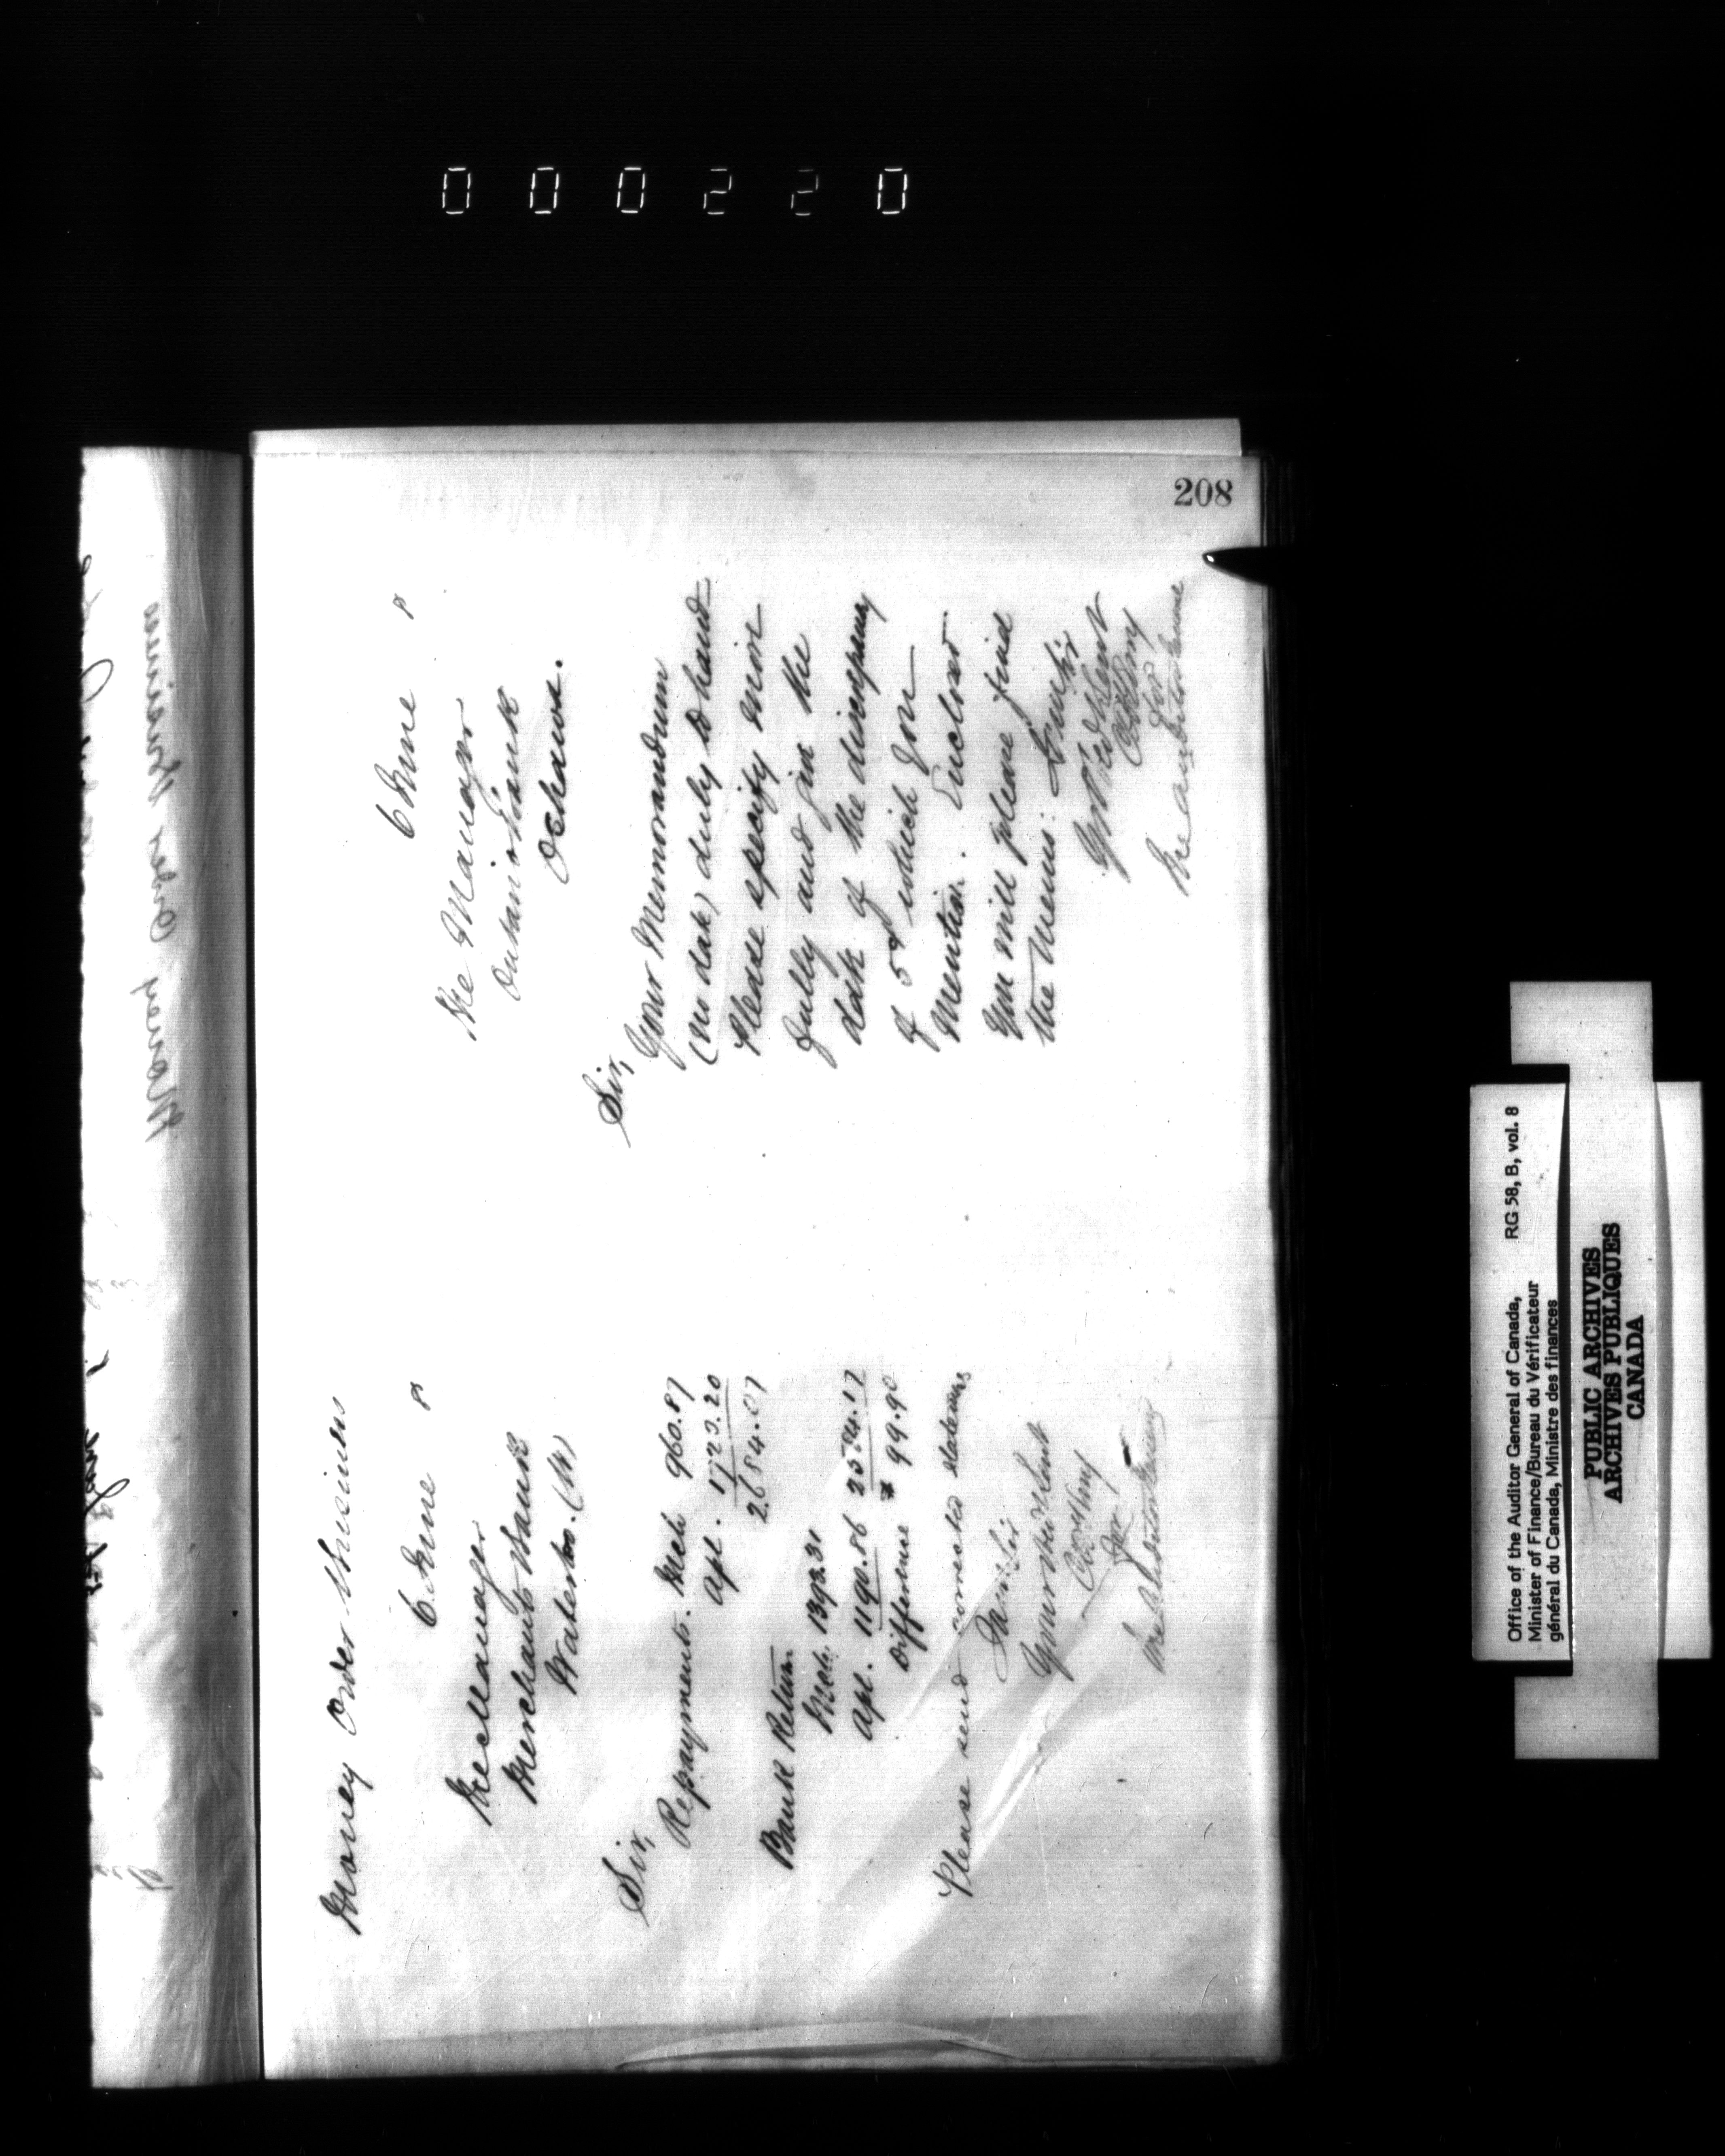 000220
208
Money Order Division
6 June 8
The Manager
Merchants Bank
Waterloo. (W)
Sir,
Repayments. Mch 960.87
Apl. 1723.20
2684.07
Bank Return.
Mch. 1393.31
Apl. 1190.86 2584.17
Difference $ 99.90
Please send corrected statements
I am Sir
Your Obt Servt
for
The Auditor
6 June 8
The Manager
Ontario Bank
Oshawa.
Sir,
Your Memorandum
(no date) duly to hand
Please specify more
fully and give the
date of the discrepancy
of 5¢ which you
Mention. Enclosed
you will please find
the Memo: I am Sir
Your Obt Servt
for
The Auditor
Money Order Division
Office of the Auditor General of Canada, RG 58, B, vol. 8
Minister of Finance/Bureau du Vérificateur
général du Canada, Ministre des finances
PUBLIC ARCHIVES
ARCHIVES PUBLIQUES
CANADA